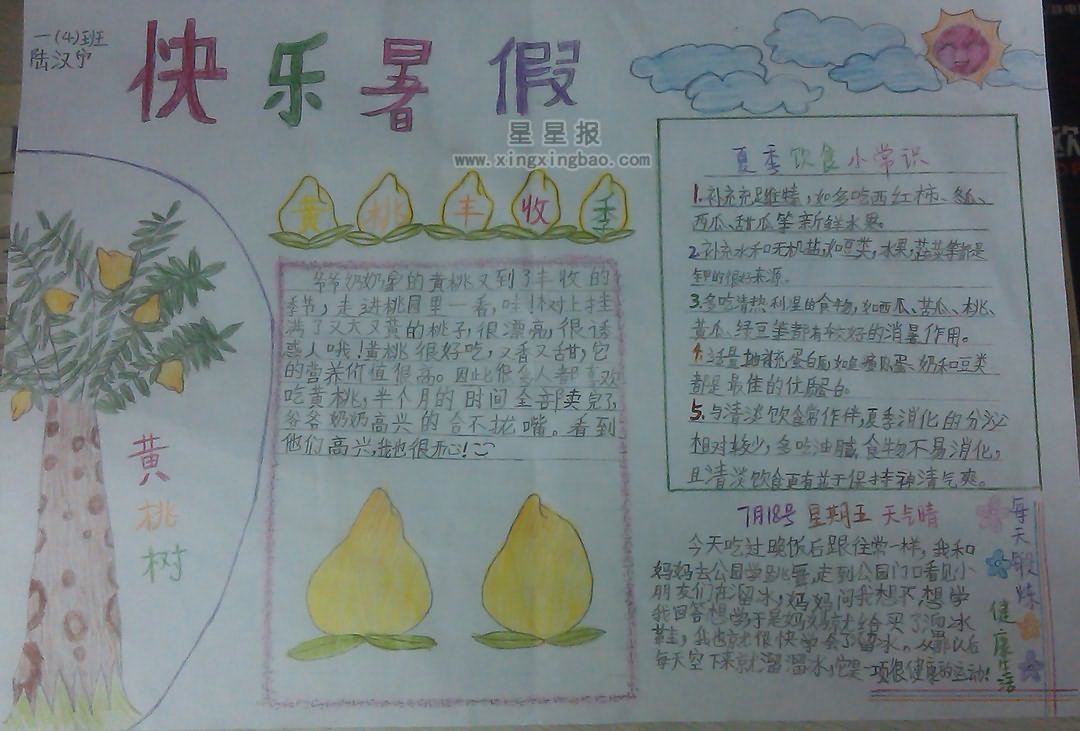 一(4)班
陆汉宁
快乐暑假
星星报
www.xingxingbao.com
黄桃丰收季
爷爷奶奶家的黄桃又到了丰收的
季节，走进桃园里一看，哇！树上挂
满了又大又黄的桃子，很漂亮，很诱
惑人哦！黄桃很好吃，又香又甜，它
的营养价值很高。因此很多人都喜欢
吃黄桃，半个月的时间全部卖完了，
爷爷奶奶高兴的合不拢嘴。看到
他们高兴，我也很开心！
黄桃树
夏季饮食小常识
1.补充充足维特，如多吃西红柿、冬瓜、
西瓜、甜瓜等新鲜水果。
2.补充水和无机盐，如豆类，水果，蔬菜等都是
钾的很好来源。
3.多吃清热利湿的食物，如西瓜、苦瓜、桃、
黄瓜、绿豆等都有较好的消暑作用。
4.适量地补充蛋白质，如鱼瘦肉蛋、奶和豆类
都是最佳的优质蛋白。
5.与清淡饮食常作伴，夏季消化的分泌
相对较少，多吃油腻食物不易消化，
且清淡饮食更有益于保持神清气爽。
7月18号 星期五 天气晴
今天吃过晚饭后跟往常一样，我和
妈妈去公园学跳舞，走到公园门口看见小
朋友们在溜冰，妈妈问我想不想学
我回答想学于是妈妈就给买了溜冰
鞋，我也就很快学会了溜冰。从那以后
每天空下来就溜溜冰，它是一项很健康的运动！
每天锻炼
健康生活